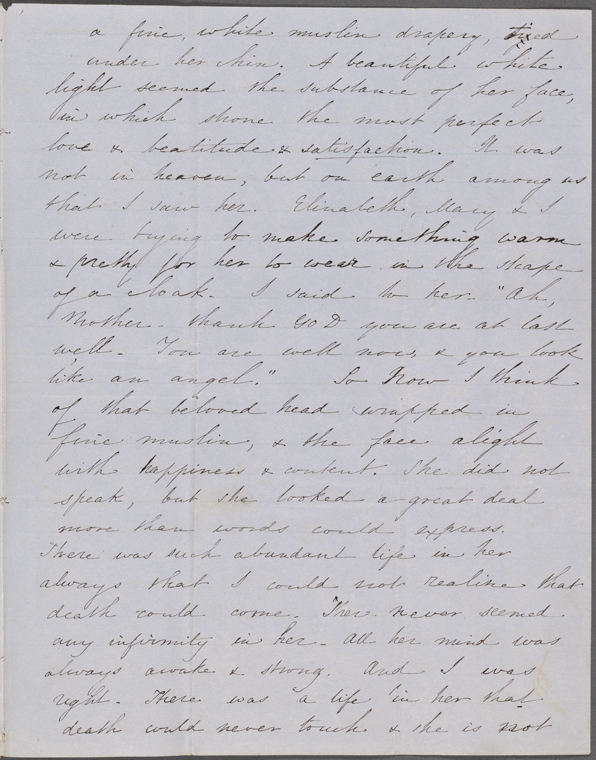 a fine, white muslin drapery, tied
under her chin. A beautiful white
light seemed the substance of her face,
in which shone the most perfect
love & beatitude & satisfaction. It was
not in heaven, but on earth among us
that I saw her. Elizabeth, Mary & I
were trying to make something warm
& pretty for her to wear in the shape
of a cloak. I said to her "Ah,
Mother - thank GOD you are at last
well - You are well now, & you look
like an angel." So now I think
of that beloved head wrapped in
fine muslin, & the face alight
with happiness & content. She did not
speak, but she looked a great deal
more than words could express.
There was such abundant life in her
always that I could not realize that
death could come. There never seemed
any infirmity in her - All her mind was
always awake & strong. And I was
right. There was a life in her that
death could never touch & she is not